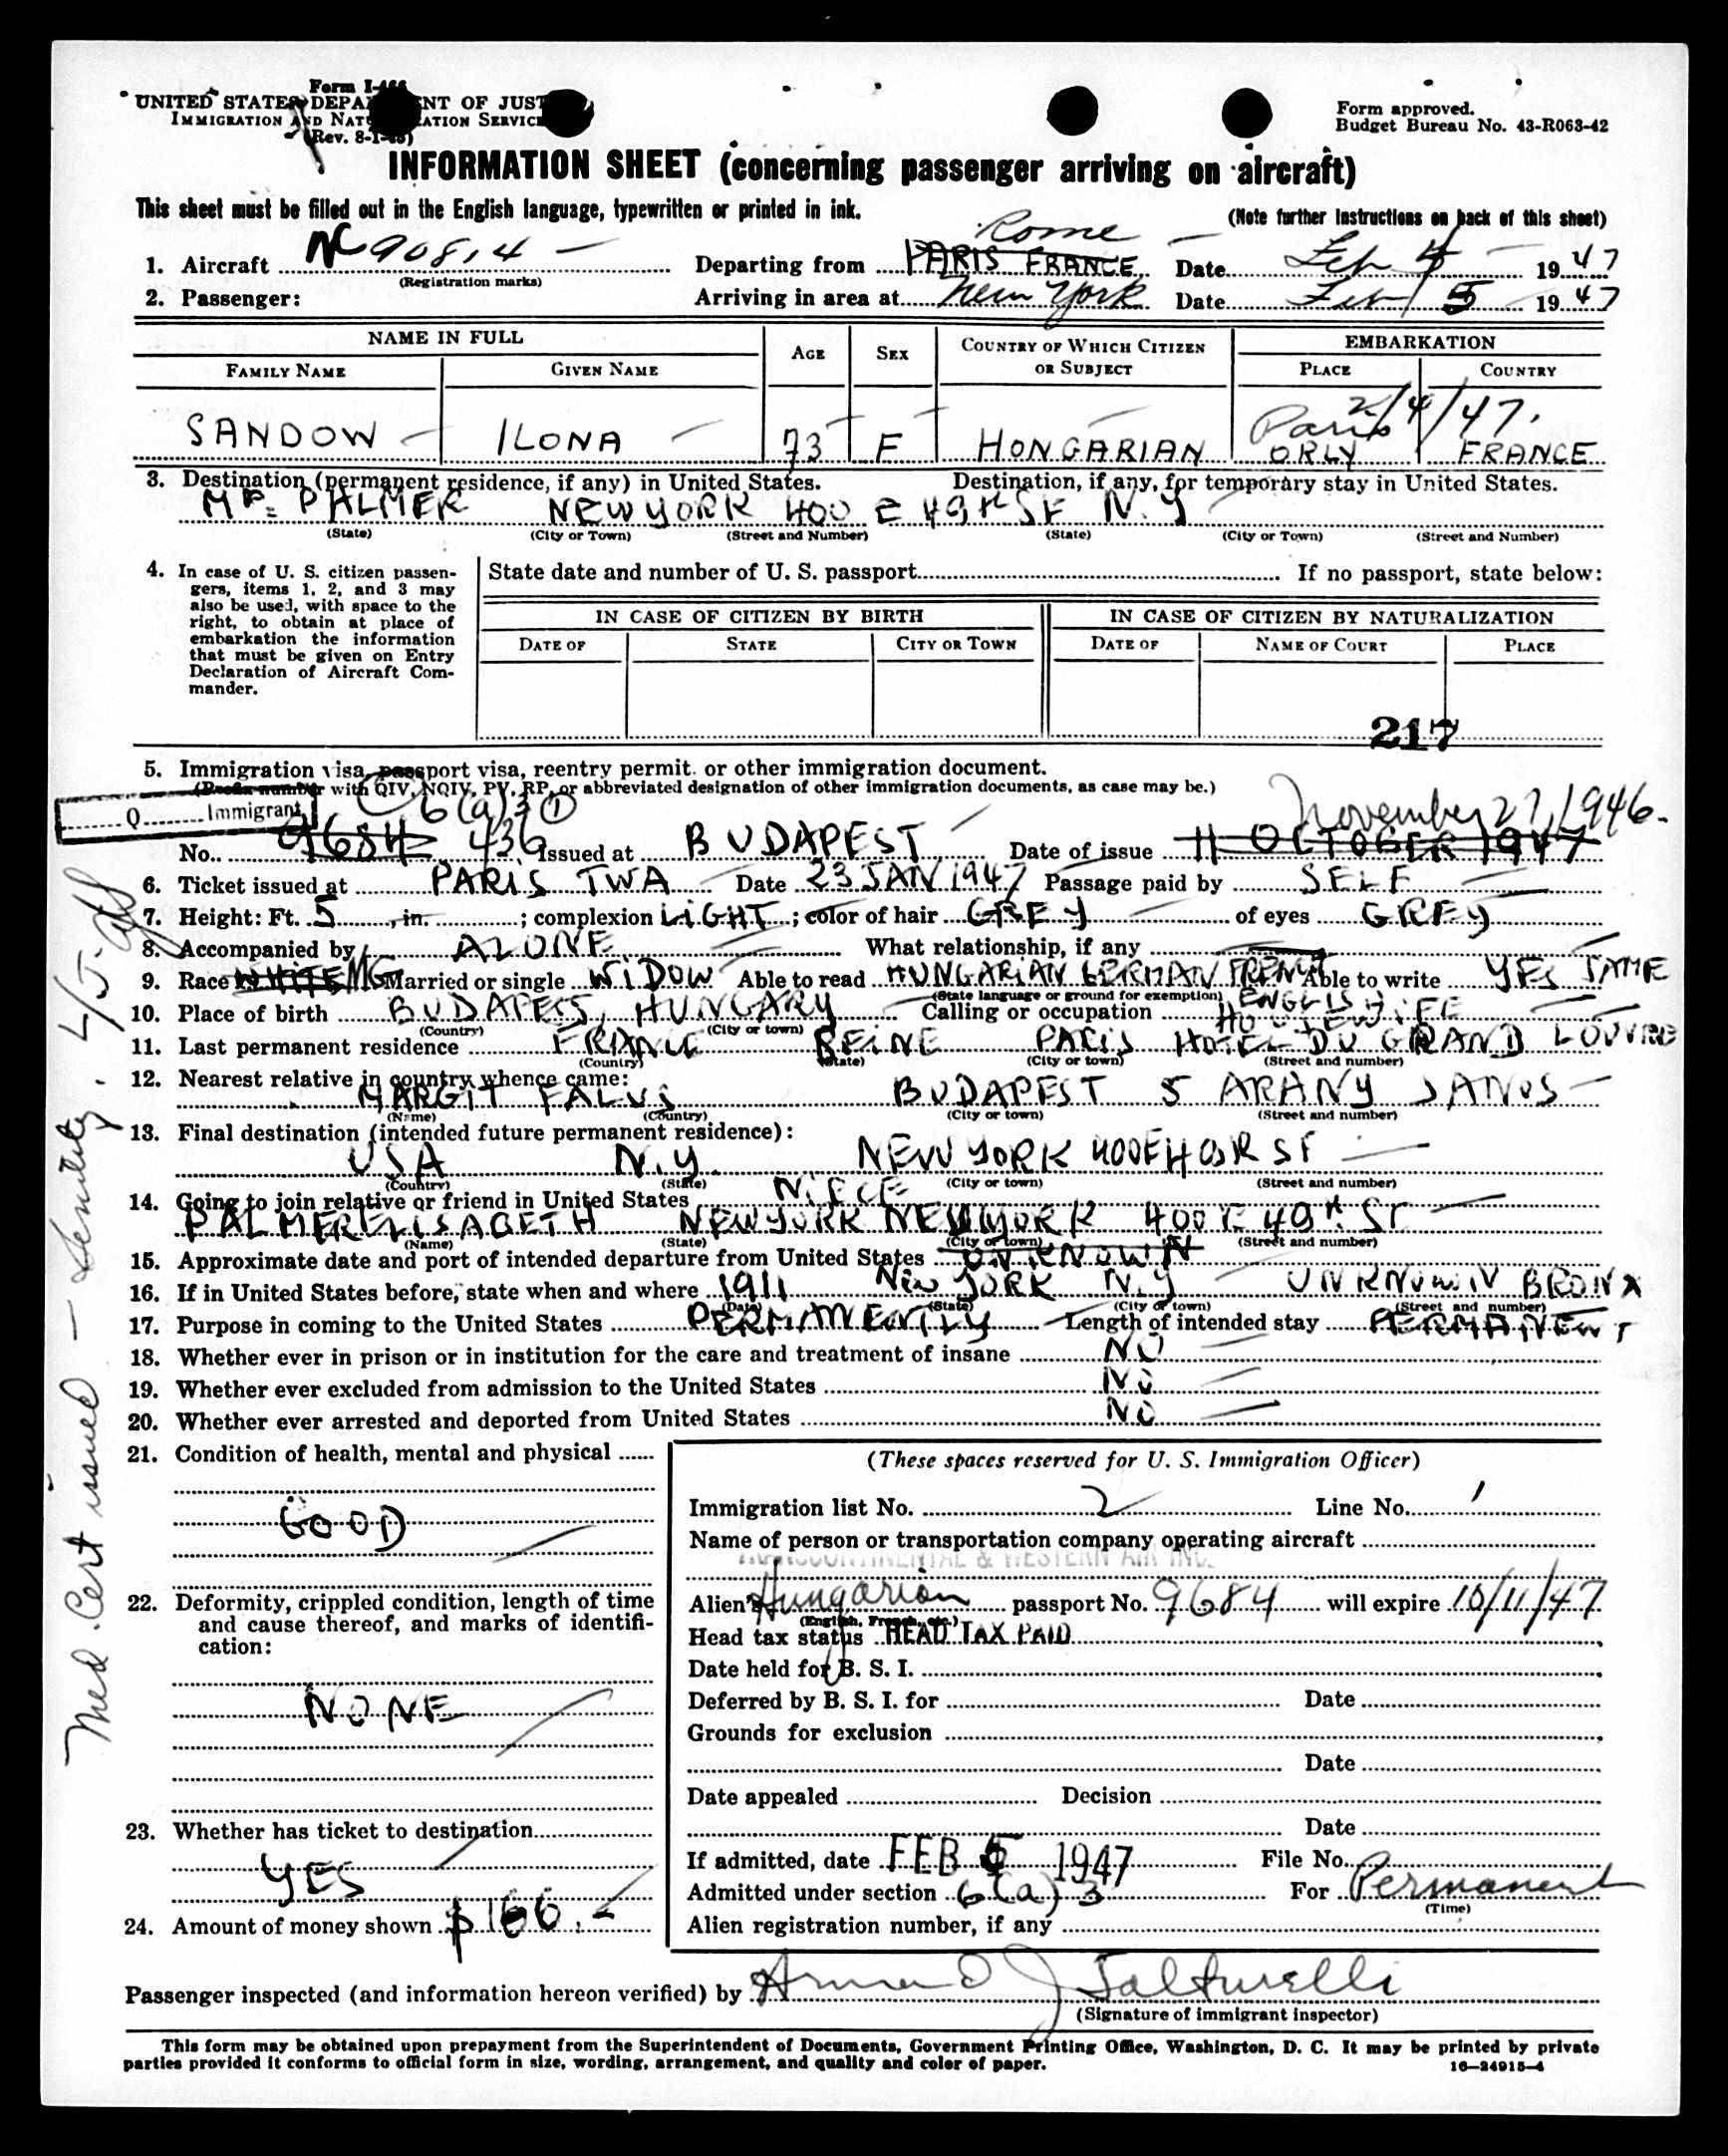 Form I-466
UNITED STATES DEPARTMENT OF JUSTICE
IMMIGRATION AND NATURALIZATION SERVICE
(Rev. 8-1-45)
Form approved.
Budget Bureau No. 43-R063-42
INFORMATION SHEET (concerning passenger arriving on aircraft)
This sheet must be filled out in the English language, typewritten or printed in ink.
(Note further instructions on back of this sheet)
Rome
1. Aircraft NC 90814 Departing from PARIS FRANCE Date Feb 4 1947
(Registration marks)
2. Passenger: Arriving in area at New York Date Feb 5 1947
NAME IN FULL AGE SEX COUNTRY OF WHICH CITIZEN OR SUBJECT EMBARKATION
FAMILY NAME GIVEN NAME PLACE COUNTRY
2/4/47.
Paris
SANDOW ILONA 73 F HONGARIAN ORLY FRANCE
3. Destination (permanent residence, if any) in United States. Destination, if any, for temporary stay in United States.
PALMER NEW YORK 400 E 49th St N.Y
(State) (City or Town) (Street and Number) (State) (City or Town) (Street and Number)
4. In case of U. S. citizen passengers, items 1, 2, and 3 may also be used, with space to the right, to obtain at place of embarkation the information that must be given on Entry Declaration of Aircraft Commander.
State date and number of U. S. passport If no passport, state below:
IN CASE OF CITIZEN BY BIRTH IN CASE OF CITIZEN BY NATURALIZATION
DATE OF STATE CITY OR TOWN DATE OF NAME OF COURT PLACE
217
5. Immigration visa, passport visa, reentry permit. or other immigration document.
(Prefix number with QIV, NQIV, PV, RP, or abbreviated designation of other immigration documents, as case may be.)
Q Immigrant
6(a)3 1
November 27, 1946.
No. 9684 436 Issued at BUDAPEST Date of issue 11 OCTOBER 1947
6. Ticket issued at PARIS TWA Date 23 JAN 1947 Passage paid by SELF
7. Height: Ft. 5, in. ; complexion LIGHT; color of hair GREY of eyes GREY
8. Accompanied by ALONE What relationship, if any
9. Race WHITE MG Married or single WIDOW Able to read HUNGARIAN GERMAN FRENCH Able to write YES SAME
(State language or ground for exemption) ENGLISH
10. Place of birth BUDAPES, HUNGARY Calling or occupation HOUSEWIFE
(Country) (City or town)
11. Last permanent residence FRANCE SEINE PARIS HOTEL DU GRAND LOUVRE
(Country) (State) (City or town) (Street and number)
12. Nearest relative in country whence came:
MARGIT FALUS BUDAPEST 5 ARANY JANOS
(Name) (Country) (City or town) (Street and number)
13. Final destination (intended future permanent residence):
USA N.Y. NEW YORK
(Country) (State) (City or town) (Street and number)
14. Going to join relative or friend in United States NIECE
PALMER ELISABETH NEW YORK NEW YORK 400 E 49th St
(Name) (State) (City or town) (Street and number)
15. Approximate date and port of intended departure from United States UNKNOWN
16. If in United States before, state when and where 1911 NEW YORK N.Y UNKNOWN BRONX
(Date) (State) (City or town) (Street and number)
17. Purpose in coming to the United States PERMANENTLY Length of intended stay PERMANENT
18. Whether ever in prison or in institution for the care and treatment of insane NO
19. Whether ever excluded from admission to the United States NO
20. Whether ever arrested and deported from United States NO
21. Condition of health, mental and physical
GOOD
22. Deformity, crippled condition, length of time and cause thereof, and marks of identification:
NONE
23. Whether has ticket to destination
YES
24. Amount of money shown $ 166.-
(These spaces reserved for U. S. Immigration Officer)
Immigration list No. 2 Line No. 1
Name of person or transportation company operating aircraft
TRANSCONTINENTAL & WESTERN AIR INC.
Alien's Hungarian passport No. 9684 will expire 10/11/47
(English, French, etc.)
Head tax status HEAD TAX PAID
Date held for B. S. I.
Deferred by B. S. I. for Date
Grounds for exclusion
Date
Date appealed Decision
Date
If admitted, date FEB 5 1947 File No.
Admitted under section 6(a)3 For Permanent
(Time)
Alien registration number, if any
Passenger inspected (and information hereon verified) by
(Signature of immigrant inspector)
This form may be obtained upon prepayment from the Superintendent of Documents, Government Printing Office, Washington, D. C. It may be printed by private
parties provided it conforms to official form in size, wording, arrangement, and quality and color of paper.
16—24915-4
Med. Cert issued - Senility.